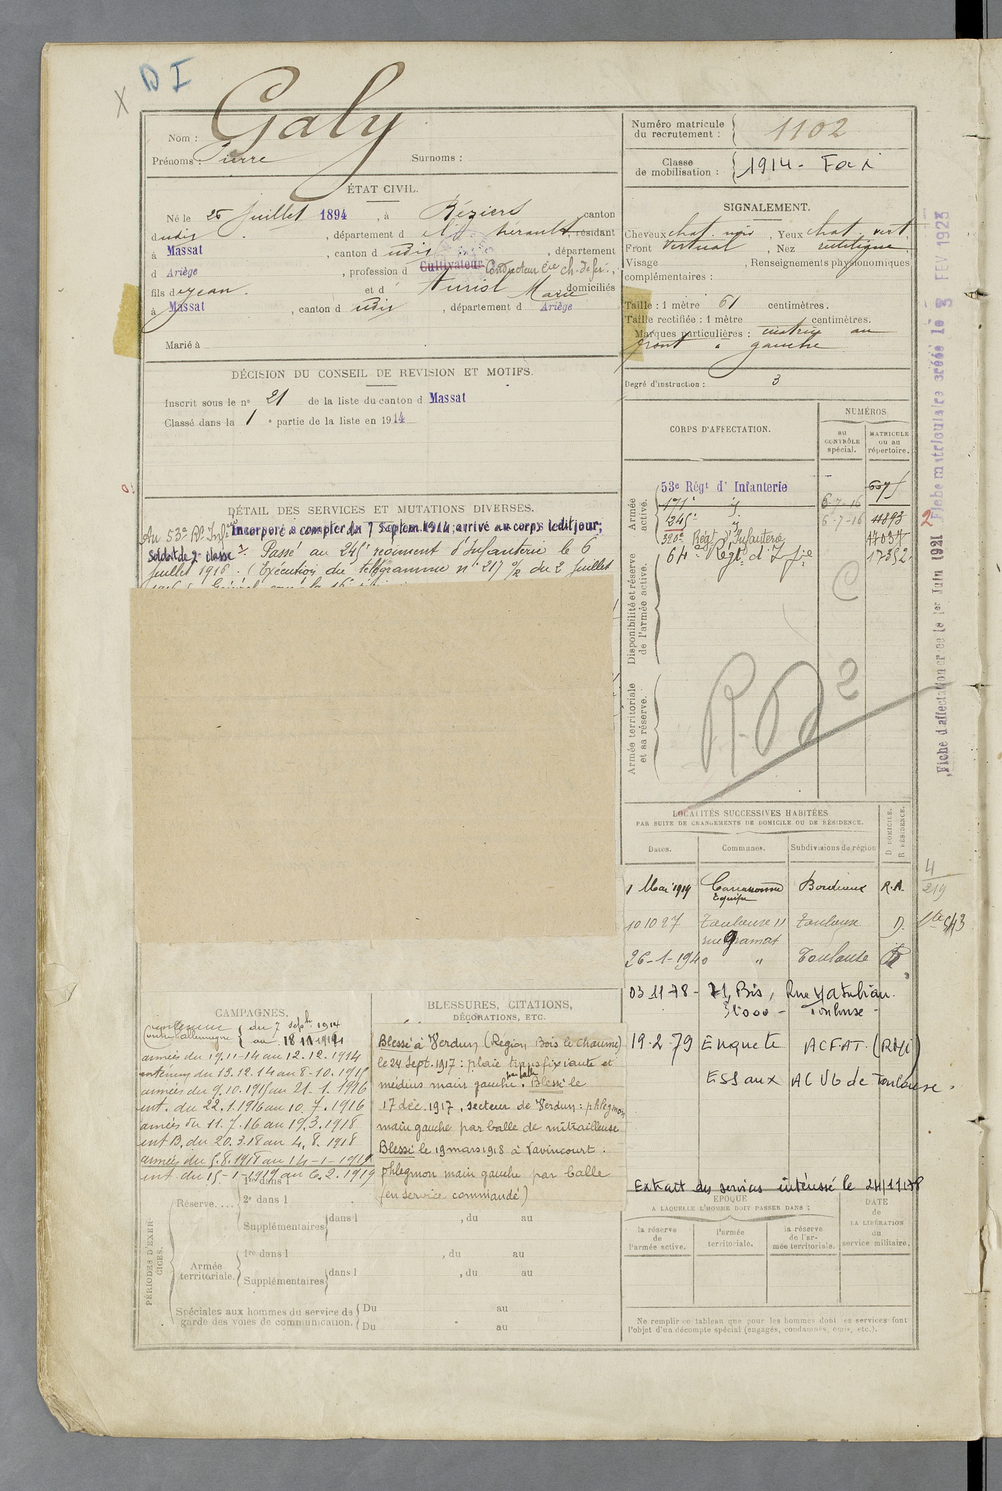 X D I
Nom : Galy
Prénoms : Pierre Surnoms :
Numéro matricule du recrutement : 1102
Classe de mobilisation : 1914 -
ÉTAT CIVIL.
Né le 26 Juillet 1894, à Béziers canton
dudis, département d Hérault, résidant
à Massat, canton d udis, département
d Ariège, profession d Cultivateur Conducteur ch. de fer.
fils de Jean. et d Auriol Marie domiciliés
à Massat, canton d udis, département d Ariège
Marié à
SIGNALEMENT.
Cheveux chat. noir, Yeux chat. vert
Front vertical, Nez rectiligne
Visage , Renseignements physionomiques
complémentaires :
Taille : 1 mètre 61 centimètres.
Taille rectifiée : 1 mètre centimètres.
Marques particulières : cicatrice au
front à gauche
Degré d'instruction : 3
DÉCISION DU CONSEIL DE REVISION ET MOTIFS.
Inscrit sous le n° 21 de la liste du canton d Massat
Classé dans la 1e partie de la liste en 1914
CORPS D'AFFECTATION.
NUMÉROS
au contrôle spécial.
matricule ou au répertoire.
Armée active.
53e Régt d'Infanterie
171e
245e 6-7-16 11893
Régt d'Infanterie
64e Régt d'Infie 17352
Disponibilité et réserve de l'armée active.
C
Armée territoriale et sa réserve.
R.D 2
DÉTAIL DES SERVICES ET MUTATIONS DIVERSES.
Au 53e Rt Infie Incorporé à compter du 7 Septem. 1914, arrivé au corps ledit jour,
Soldat de 2e classe. Passé au 245e régiment d'Infanterie le 6
juillet 1916. (Exécution du télégramme n° 217 du 2 Juillet
LOCALITÉS SUCCESSIVES HABITÉES
PAR SUITE DE CHANGEMENTS DE DOMICILE OU DE RÉSIDENCE.
Dates. Communes. Subdivisions de région D. DOMICILE. R. RÉSIDENCE.
1 Mai 1919 Carcassonne Bordeaux R.A.
10 10 27 Toulouse 11 Toulouse D.
rue Gramat
26-1-1940 " Toulouse
03 11 78 - 71, Bis, Rue Matabiau
31000 - Toulouse -
19-2-79 Enquête ACFAT. (Rosi)
ESS aux ACVG de Toulouse.
Extrait des services intéressé le 24/11/78
4/219
Fiche d'affectation créée le 1er Juin 1921
2
Fiche matriculaire créée le 3 FEV 1923
CAMPAGNES.
contre l'Allemagne du 7 septe 1914
au 18 11 1914
armées du 19-11-14 au 12.12.1914
intérieur du 13.12.14 au 8-10.1915
armées du 9.10.1915 au 21.1.1916
int. du 22.1.1916 au 10.7.1916
armées du 11.7.16 au 19.3.1918
int B. du 20.3.18 au 4.8.1918
armées du 5.8.1918 au 14-1-1919
int du 15-1-1919 au 6.2.1919
BLESSURES, CITATIONS,
DÉCORATIONS, ETC.
Blessé à Verdun (Région Bois le Chaume)
le 24 Sept. 1917 : plaie transfixiante et
médius main gauche par balle. Blessé le
17 déc. 1917, secteur de Verdun : phlegmon
main gauche par balle de mitrailleuse
Blessé le 19 mars 1918 à Vavincourt :
phlegmon main gauche par balle
(en service commandé)
PÉRIODES D'EXERCICES.
Réserve....
1re dans l
2e dans l
Supplémentaires dans l , du au
Armée territoriale.
1re dans l , du au
Supplémentaires dans l , du au
Spéciales aux hommes du service de garde des voies de communication. Du au
Du au
ÉPOQUE
A LAQUELLE L'HOMME DOIT PASSER DANS :
la réserve de l'armée active.
l'armée territoriale.
la réserve de l'armée territoriale.
DATE de LA LIBÉRATION du service militaire.
Ne remplir ce tableau que pour les hommes dont les services font
l'objet d'un décompte spécial (engagés, condamnés, omis, etc.).